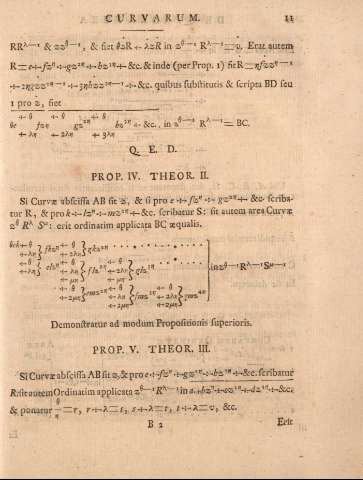 CURVARUM. 11
RR^λ—¹ & zz^θ—¹, & fiet θzR + λzR in z^θ—¹ R^λ—¹ = v. Erat autem
R = e + fz^η + gz^2η + bz^3η + &c. & inde (per Prop. 1) fit R = ηfzz^η—¹
+ 2ηgzz^2η—¹ + 3ηbzz^3η—¹ + &c. quibus substitutis & scripta BD seu
1 pro z, fiet
+ θ + θ + θ
θe fzη gz^2η bz^3η + &c. in z^θ—¹ R^λ—¹ = BC.
+ λη + 2λη + 3λη
Q. E. D.
PROP. IV. THEOR. II.
Si Curvæ abscissa AB sit z, & si pro e + fz^η + gz^2η + &c. scriba-
tur R, & pro k + lz^η + mz^2η + &c. scribatur S: sit autem area Curvæ
z^θ R^λ S^μ: erit ordinatim applicata BC æqualis.
in z^θ—¹ R^λ—¹ S^μ—¹
Demonstratur ad modum Propositionis superioris.
PROP. V. THEOR. III.
Si Curvæ abscissa AB sit z, & pro e + fz^η + gz^2η + bz^3η + &c. scribatur
R: sit autem Ordinatim applicata z^θ—¹ R^λ—¹ in a + bz^η + cz^2η + dz^3η + &c.
& ponatur θ/η = r, r + λ = s, s + λ = t, t + λ = v, &c.
B 2 Erit